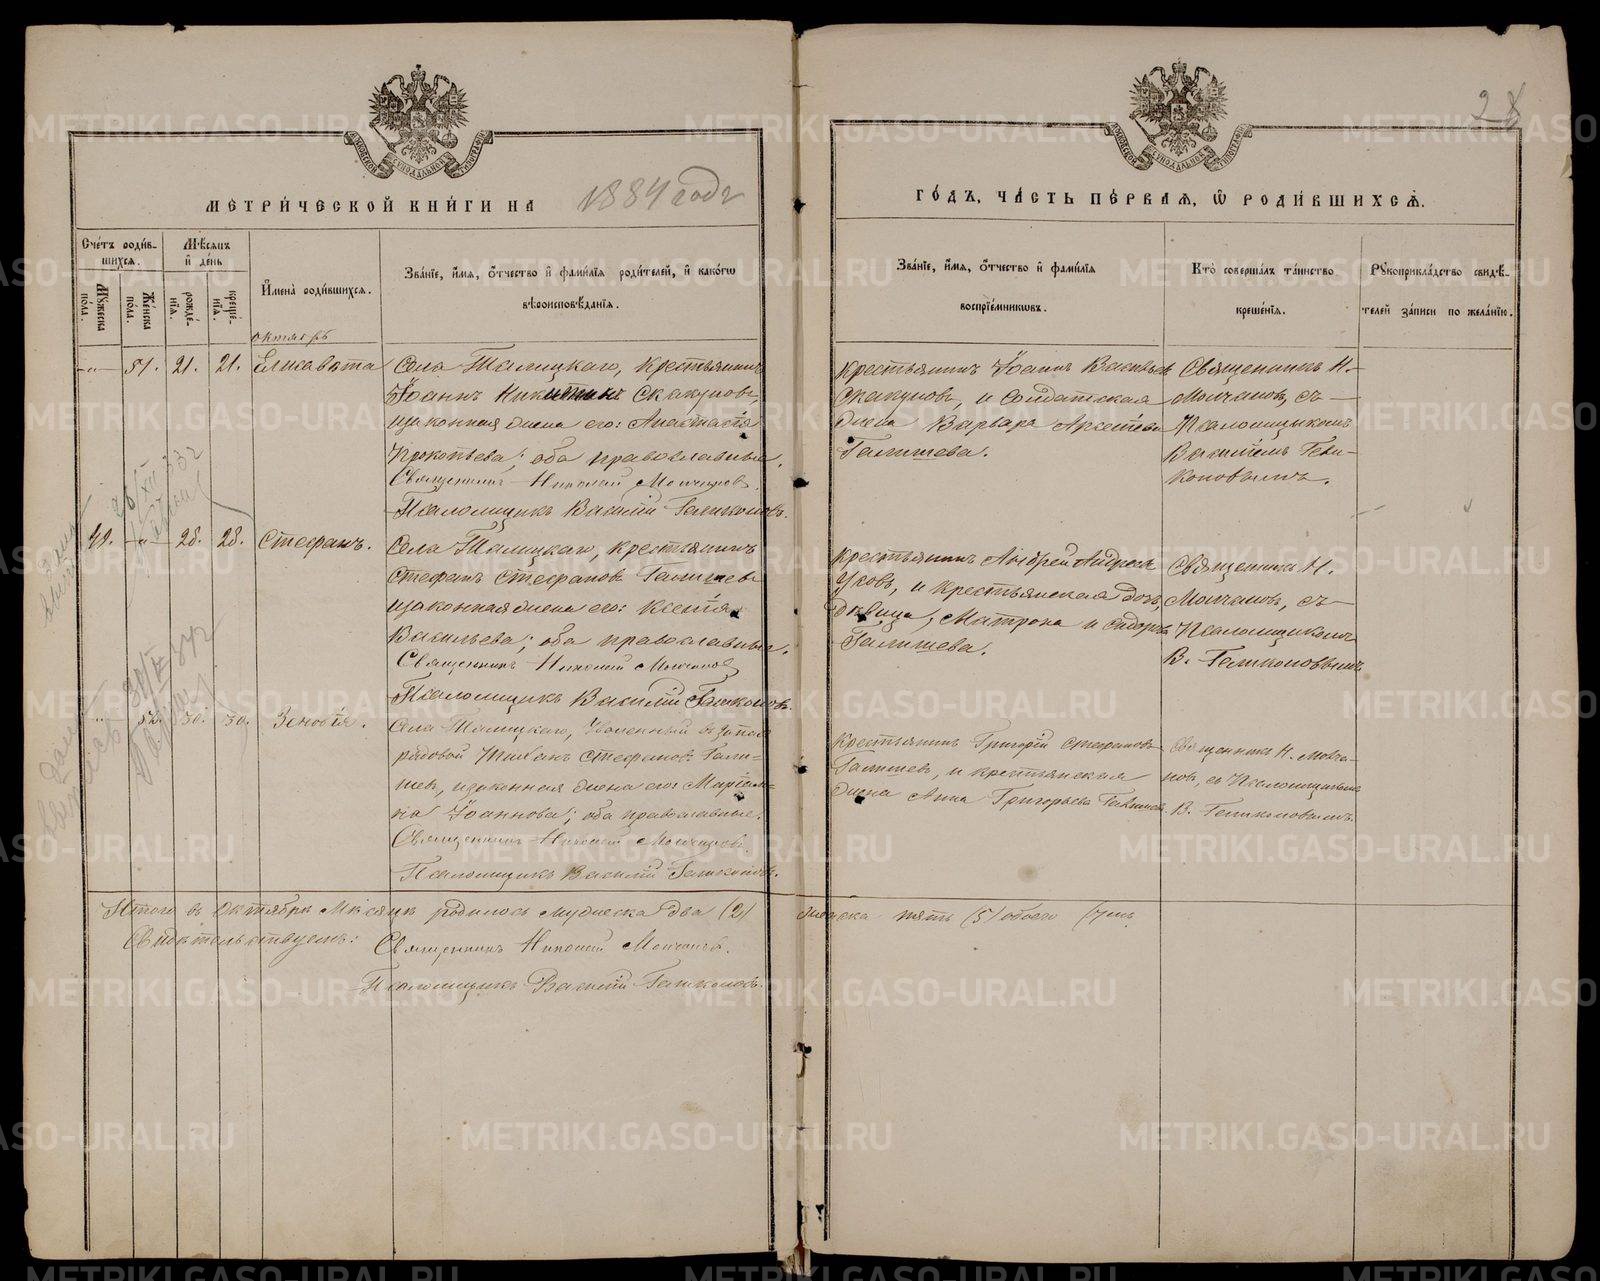 МЕТРИ́ЧЕСКОЙ КНИ́ГИ НА 1884 годъ
Сче́тъ роди́в-
шихся.
Мѣсяцъ
и҆ де́нь
Му́жеска
по́ла.
Же́нска
по́ла.
рожде́-
нїѧ.
креще́-
нїѧ.
И҆мена̀ роди́вшихся.
Зва́нїе, и҆́мя, ѻ҆́тчество и҆ фами́лїя роди́телей, и҆ како́гѡ
вѣроисповѣ́данїѧ.
октябрь
-"- 51. 21. 21. Елисавета
Села Талицкаго, крестьянинъ
Іоаннъ Никитинъ Скакуновъ,
и законная жена его: Анастасія
Прокопьева; оба православные.
Священникъ Николай Молчановъ.
Псаломщикъ Василій Галиконовъ.
42. -"- 28. 28. Стефанъ.
Села Талицкаго, крестьянинъ
Стефанъ Стефановъ Галишевъ
и законная жена его: Ксенія
Васильева; оба православные.
Священникъ Николай Молчановъ
Псаломщикъ Василій Галиконовъ.
" 52. 30. 30. Зиновія.
Села Талицкаго, Уволенный въ запасъ
рядовой Стефановъ Гали-
шев, и законная жена его: Маріам-
на Іоаннова; оба православные.
Священникъ Николай Молчановъ.
Псаломщикъ Василій Галиконовъ.
Итого въ Октябрѣ Мѣсяцѣ родилось мужеска два (2)
Свидѣтельствуемъ: Священникъ Николай Молчановъ.
Псаломщикъ Василій Галиконовъ.
28
ГО́ДЪ, ЧА́СТЬ ПЕ́РВАЯ, Ѽ РОДИ́ВШИХСѦ.
Зва́нїе, и҆́мя, ѻ҆́тчество и҆ фами́лїя
воспрїе́мникѡвъ.
Кто̀ соверша́лъ та́инство
креще́нїѧ.
Рꙋкоприкла́дство свидѣ́-
телей за́писи по жела́нїю.
крестьянинъ Іоаннъ Васильевъ
Скакуновъ, и солдатская
жена Варвара
Галишева.
Священникъ Н.
Молчановъ, съ
Псаломщикомъ
Василіемъ Гали-
коновымъ.
крестьянинъ Андрей Андреевъ
и крестьянская дочь,
дѣвица, Матрона
Галишева.
Священникъ Н.
Молчановъ, съ
Псаломщикомъ
В. Галиконовымъ
крестьянинъ Григорій Стефановъ
Галишев, и крестьянская
жена Анна Григорьева Галишева
Священникъ Н. Молча-
новъ, съ Псаломщикомъ
В. Галиконовымъ.
женска пять (5) обоего (7)